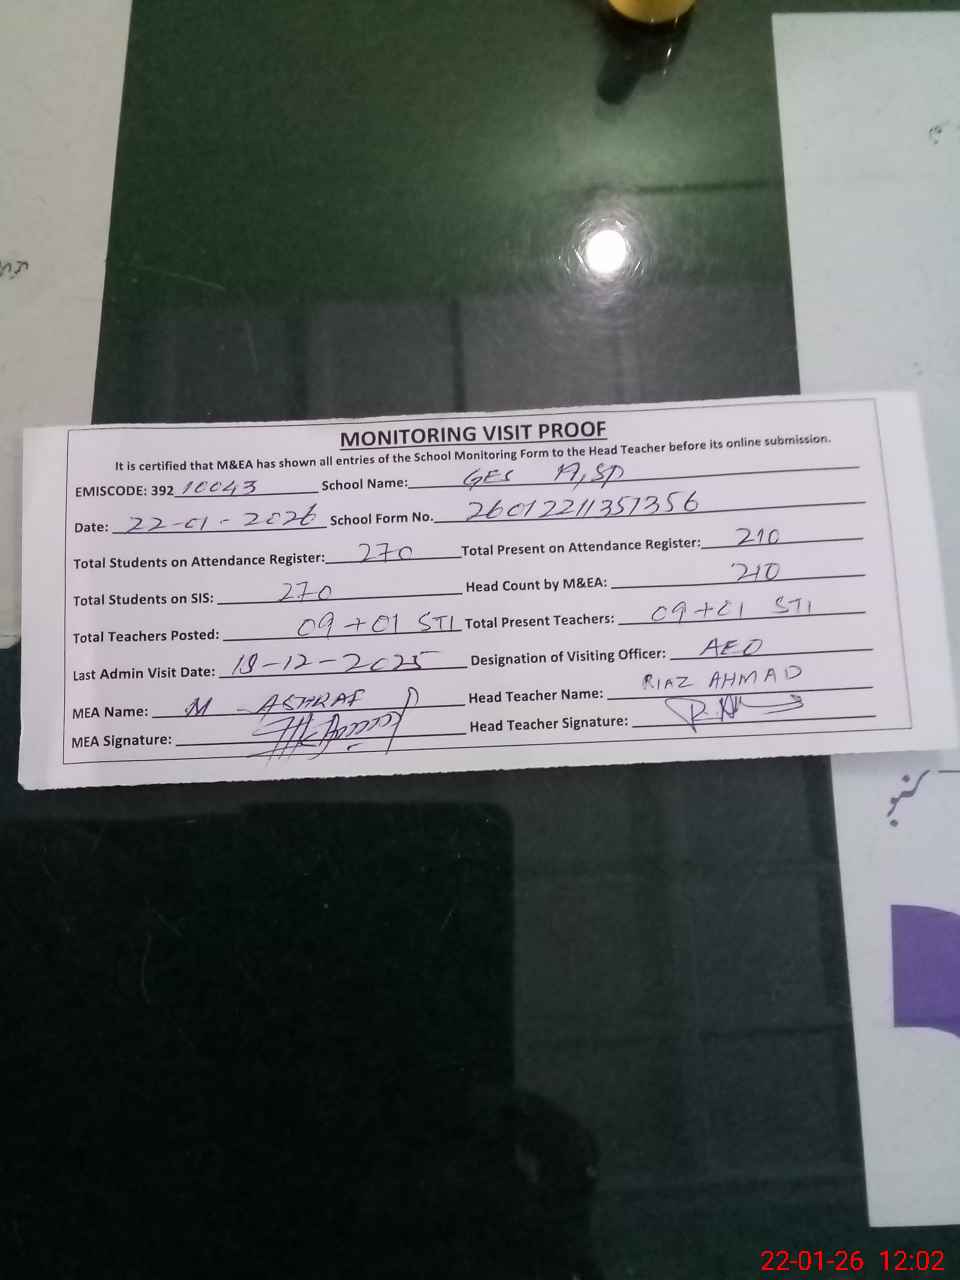 MONITORING VISIT PROOF
It is certified that M&EA has shown all entries of the School Monitoring Form to the Head Teacher before its online submission.
EMISCODE: 392 10043 School Name: GES A,SP
Date: 22-01-2026 School Form No. 26012211351356
Total Students on Attendance Register: 270 Total Present on Attendance Register: 210
Total Students on SIS: 270 Head Count by M&EA: 210
Total Teachers Posted: 09+01 STI Total Present Teachers: 09+01 STI
Last Admin Visit Date: 19-12-2025 Designation of Visiting Officer: AEO
MEA Name: M ASHRAF Head Teacher Name: RIAZ AHMAD
MEA Signature: Head Teacher Signature:
22-01-26 12:02